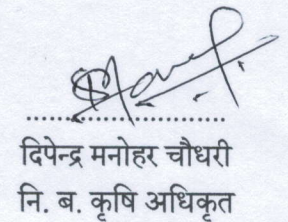 दिपेन्द्र मनोहर चौधरी
नि. ब. कृषि अधिकृत